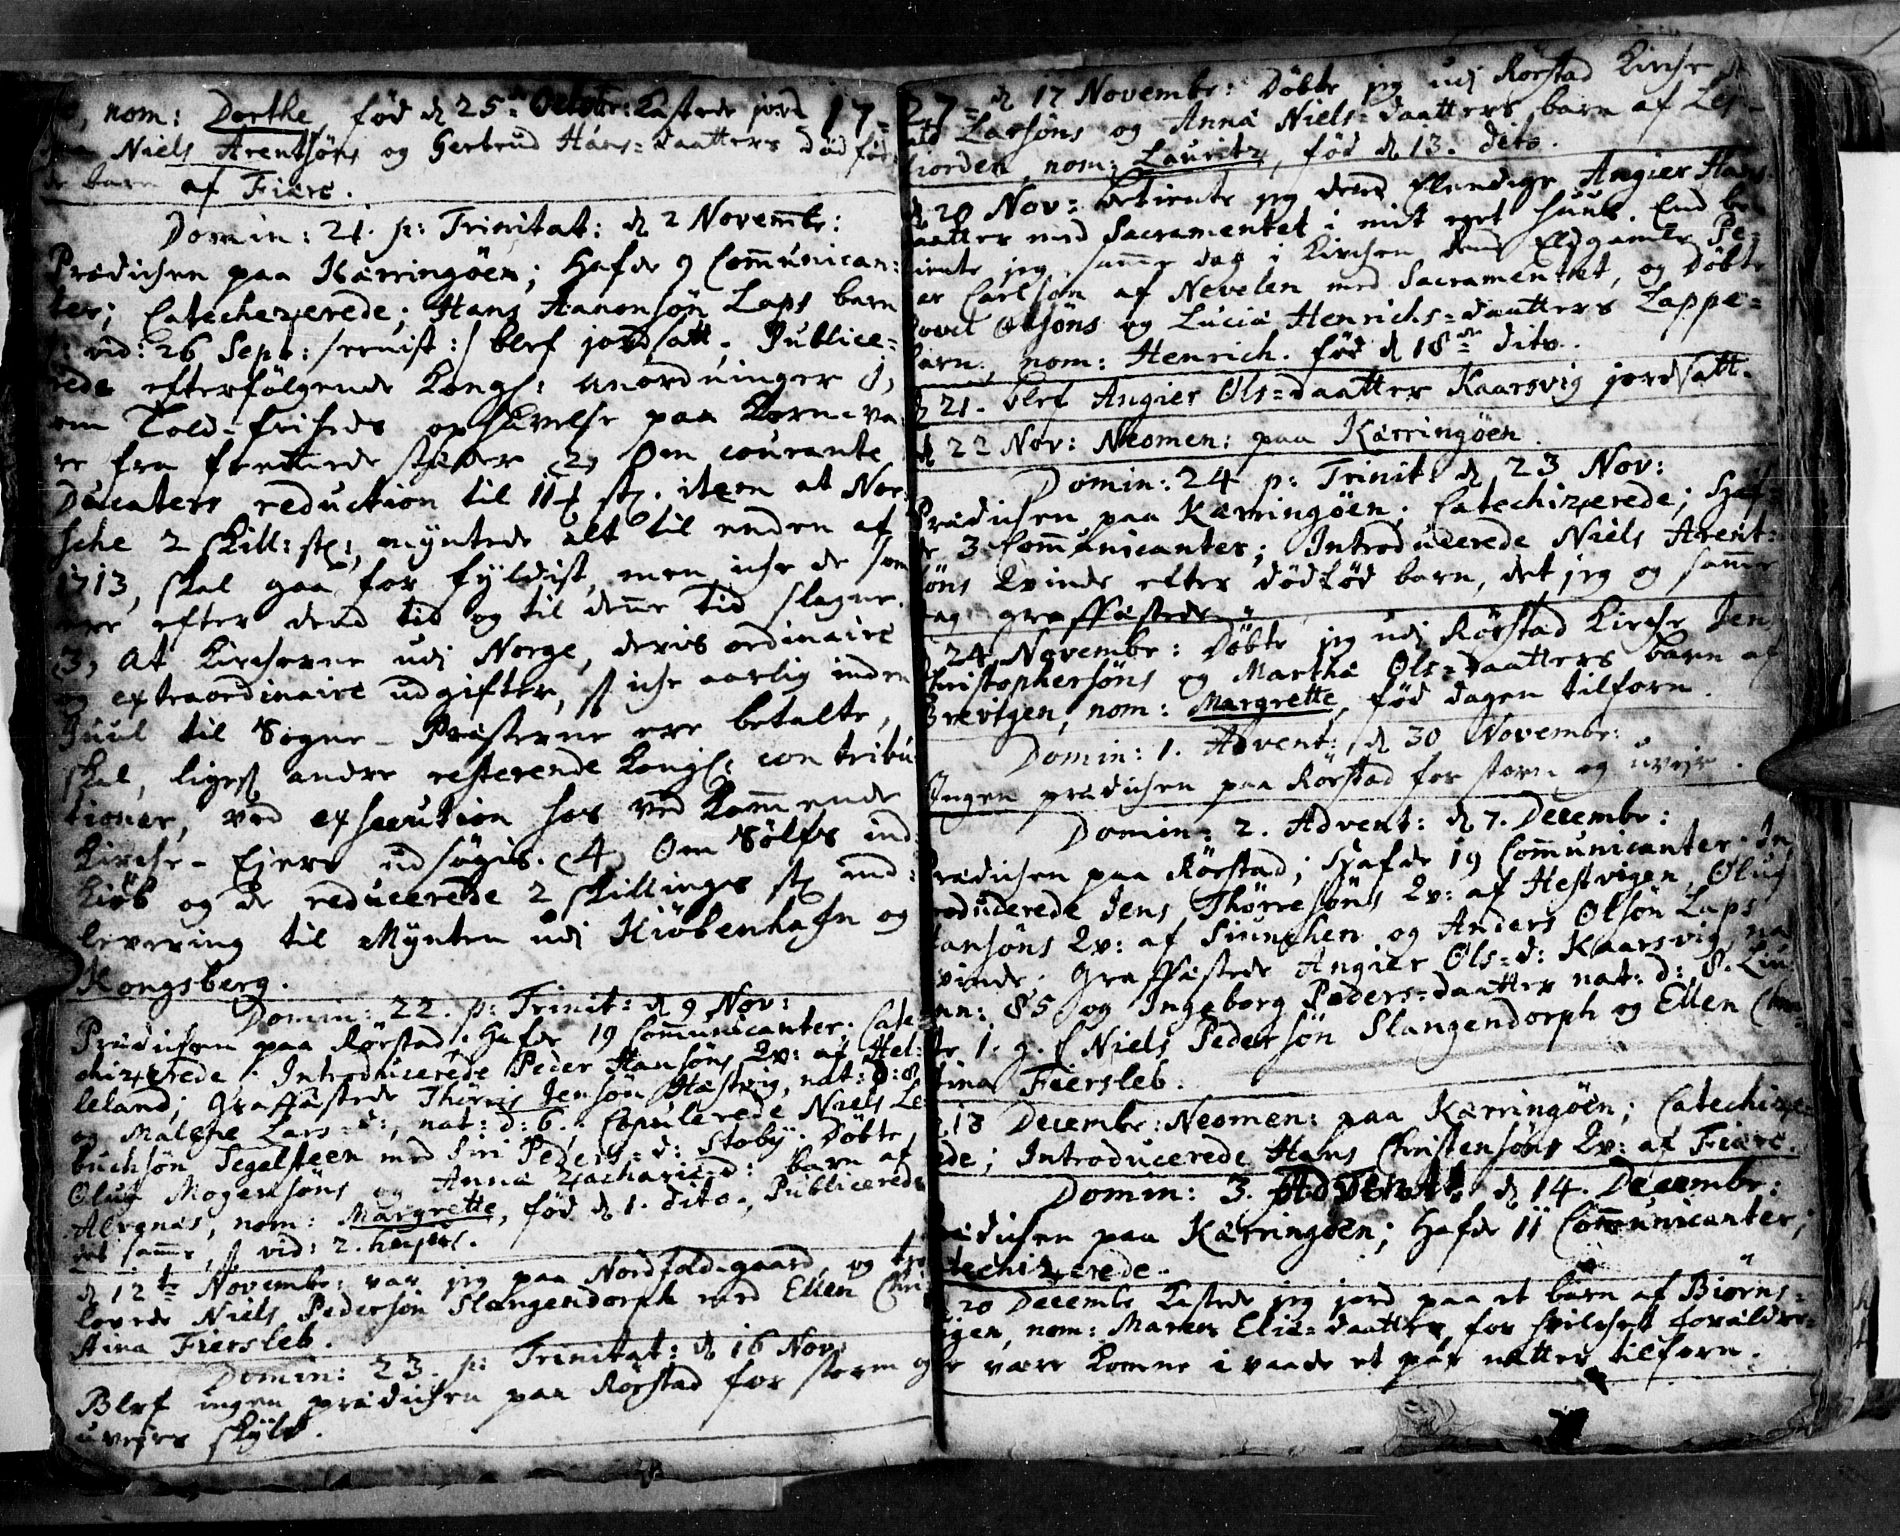 nom: Dorthe, fød d 25de Octobr: Kastede jord 17-
Niels Arentsøns og Gertrud Hans=daatters død fød=
de barn af Fiære.
Domin: 21. p: Trinitat: d 2 Novembr:
Prædichen paa Kærringøen; Hafde 9 Communican=
ter; Catechizerede; Hans Aanonsøn Laps barn
vid: 26 Sept: /: :/ blef jordsatt. Publice=
rede efterfølgende Kongl: anordninger 1,
om Told-friheds ophævelse paa Korn-va
re fra fremmede stæder (2) Om courante
Ducaters reduction til 11 st. item at Nor=
sche 2 skill: st:, myntede alt til enden af
1713, skal gaa for fyldist, men iche de som
ere efter dend tid og til denne tid slagne.
3, At Kircherne udj Norge, deris ordinaire
og extraordinaire udgifter, iche aarlig inden
Juul til Sogne-Præsterne ere betalte,
skal, ligesom andre resterende Kongl: contribu
tioner, ved exsecution hos vedkommende
Kirche-Ejere udsøgis. (4) Om Sølfs ind=
kiøb og de reducerede 2 skillinger st ind=
levering til Mynten udj Kiøbenhafn og
Kongsberg.
Domin: 22. p: Trinit: d 9 Nov:
Prædichen paa Rørstad. Hafde 19 Communicanter. Cate=
chizerede. Introducerede Peder Hansøns Qv: af Hel=
leland; Graffæstede Thörris Jensøn Hæstvig, nat: d: 8
og Malene Lars=d:, nat: d: 6. Copulerede Niels Le
buchsøn Segelsteen med Siri Peders=d: Stoby. Døbte
Oluf Mogensøns og Anna Zachariæ=d: barn af
Alvenæs, nom: Margrette, fød d 1. dito., Publicerede
det samme, vid: 2. hujus.
d 12te Novembr: var jeg paa Nordfoldgaard, og tro
lovede Niels Pedersøn Slangendorph med Ellen Chri
stina Fiersleb.
Domin: 23. p: Trinitat: d 16 Nov:
Blef ingen prædichen paa Rørstad for storm og
uvejrs skyld.
27- d 17 Novembr: Døbte jeg udj Rørstad Kirche
Larsøns og Anna Niels=daatters barn af Les=
fiorden, nom: Lauritz, fød d 13. dito.
d 20 Nov: betiente jeg dend elendige Angier Hans
daatter med Sacramentet i mit eget Huus. End be
tiente jeg samme dag i Kirchen dend Eldgamle Pe=
der Carlsøn af Nevelen med Sacramentet, og Døbte
Povel Olsøns og Lucia Henrichs=daatters Lappe=
barn, nom: Henrich. fød d 18de dito.
d 21. blef Angier Ols=daatter Kaarsvig jordsatt.
d 22 Nov: Neomen: paa Kærringøen.
Domin: 24 p: Trinit d 23 Nov:
Prædichen paa Kærringøen. Catechizerede; Haf=
de 3 Communicanter; Introducerede Niels Arent=
søns Qvinde efter dødfød barn, det jeg og samme
dag graffæstede.
d 24 Novembr: Døbte jeg udj Rørstad Kirche Jen
Christophersøns og Martha Ols=daatters barn af
Brevigen, nom: Margrette, fød dagen tilforn.
Domin: 1. Advent: d 30 Novembr:
Ingen prædichen paa Rørstad for storm og uvejr.
Domin: 2. Advent: d 7. Decembr:
Prædichen paa Rørstad; Hafde 19 Communicanter. In
troducerede Jens Thørresøns Qv: af Hestvigen, Oluf
Hansøns Qv: af og Anders Olsøn Laps
qvinde. Graffæstede Angier Ols=d: Kaarsvig na
ann: 85 og Ingeborg Peders=daatter nat: d: 8.
1. g. Niels Pedersøn Slangendorph og Ellen Chri=
stina Fiersleb.
d 13 Decembr: Neomen: paa Kærringøen; Catechize=
rede; Introducerede Hans Christensøns Qv: af Fiære.
Domin: 3. Advent: d 14. Decembr:
Prædichen paa Kærringøen; Hafde 11 Communicanter;
Catechizerede.
d 20 Decembr Kastede jeg jord paa et barn af Biørns=
vigen, nom: Maren Elie=daatter, for hvilchet forældre=
ne vare komne i vaade et par nætter tilforn.